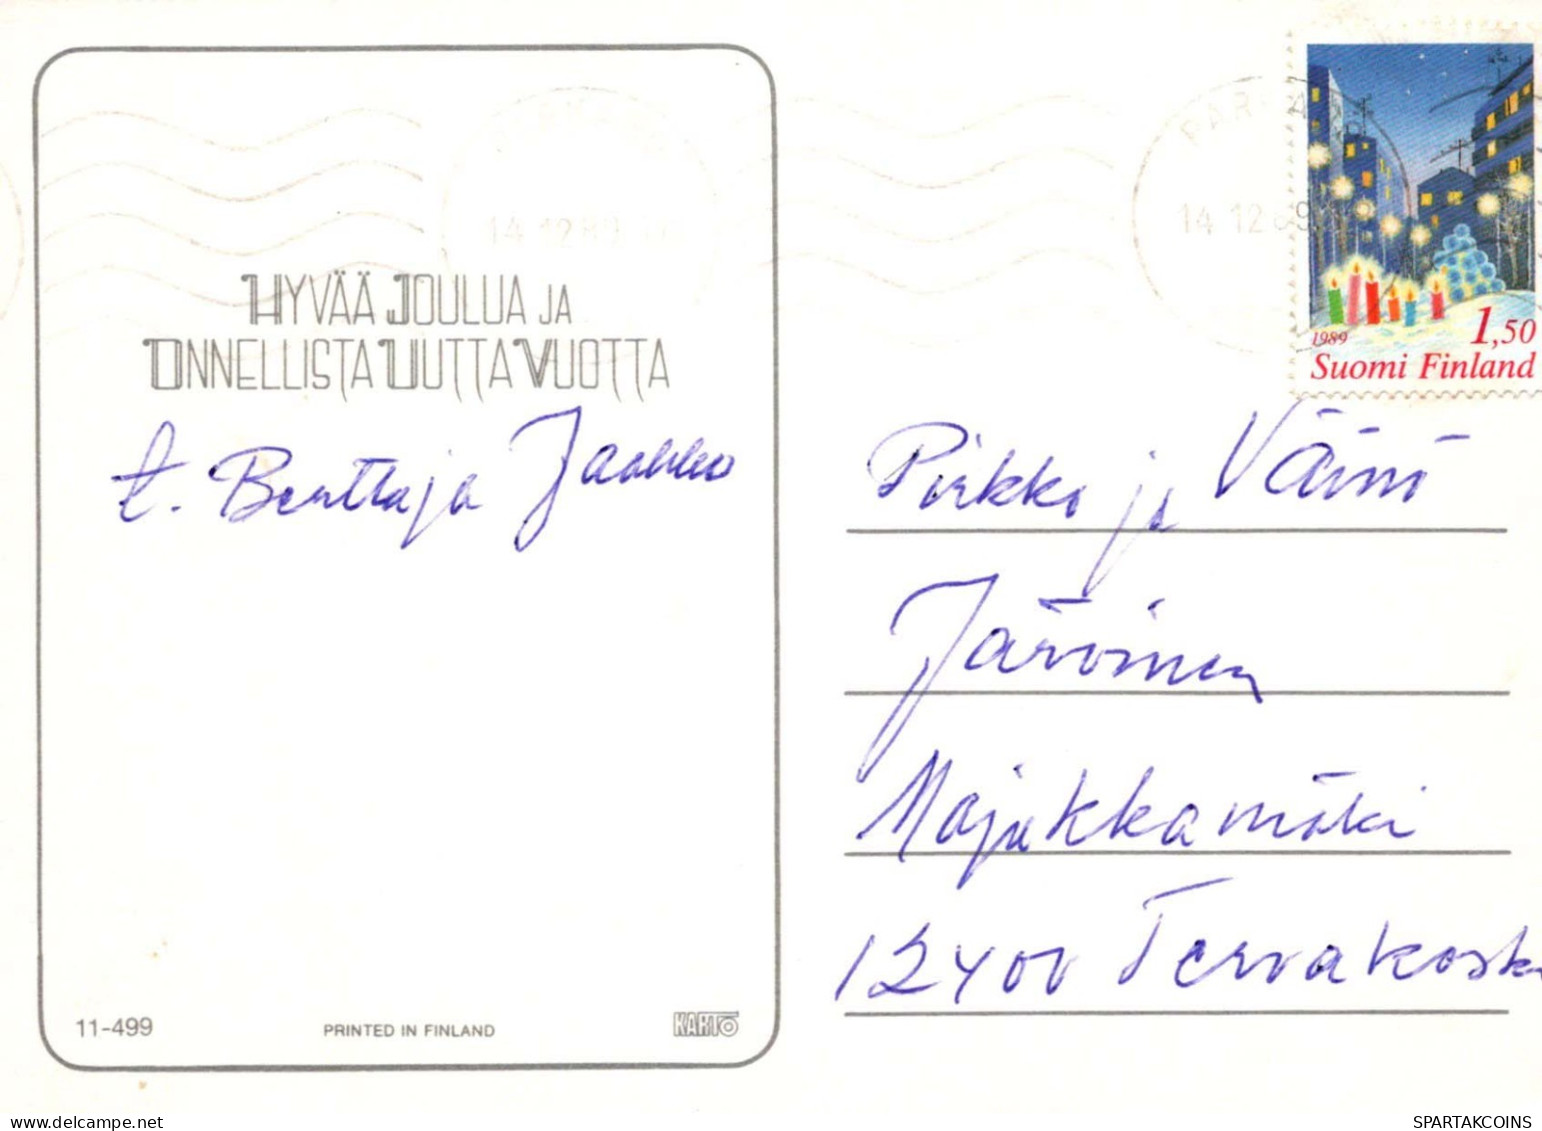 HYVÄÄ JOULUA JA
ONNELLISTA UUTTA VUOTTA
t. Bertta ja Jaakko
11-499
PRINTED IN FINLAND
KARTO
14.12.89
14.12.89
1989
1,50
Suomi Finland
Pirkko ja Väinö
Järvinen
Majakkamäki
12400 Tervakoski
SPARTAKCOINS